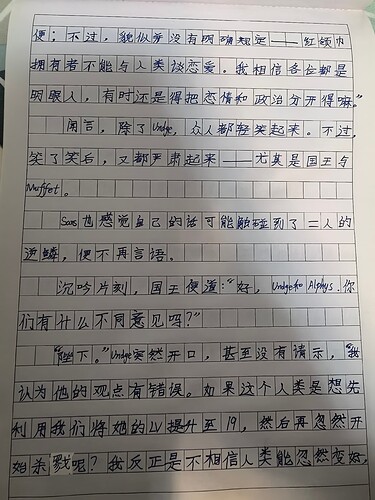 便；不过，貌似并没有明确规定——红领巾
拥有者不能与人类谈恋爱。我相信各位都是
明眼人，有时还是得把恋情和政治分开得嘛。”
闻言，除了Undye，众人都轻笑起来。不过，
笑了笑后，又都严肃起来——尤其是国王与
Muffet。
Sans也感觉自己的话可能触碰到了二人的
逆鳞，便不再言语。
沉吟片刻，国王便道：“好，Undye和Alphys，你
们有什么不同意见吗？”
“陛下。”Undye突然开口，甚至没有请示，“我
认为他的观点有错误。如果这个人类是想先
利用我们将她的LV提升至19，然后再忽然开
始杀戮呢？我反正是不相信人类能忽然变好，